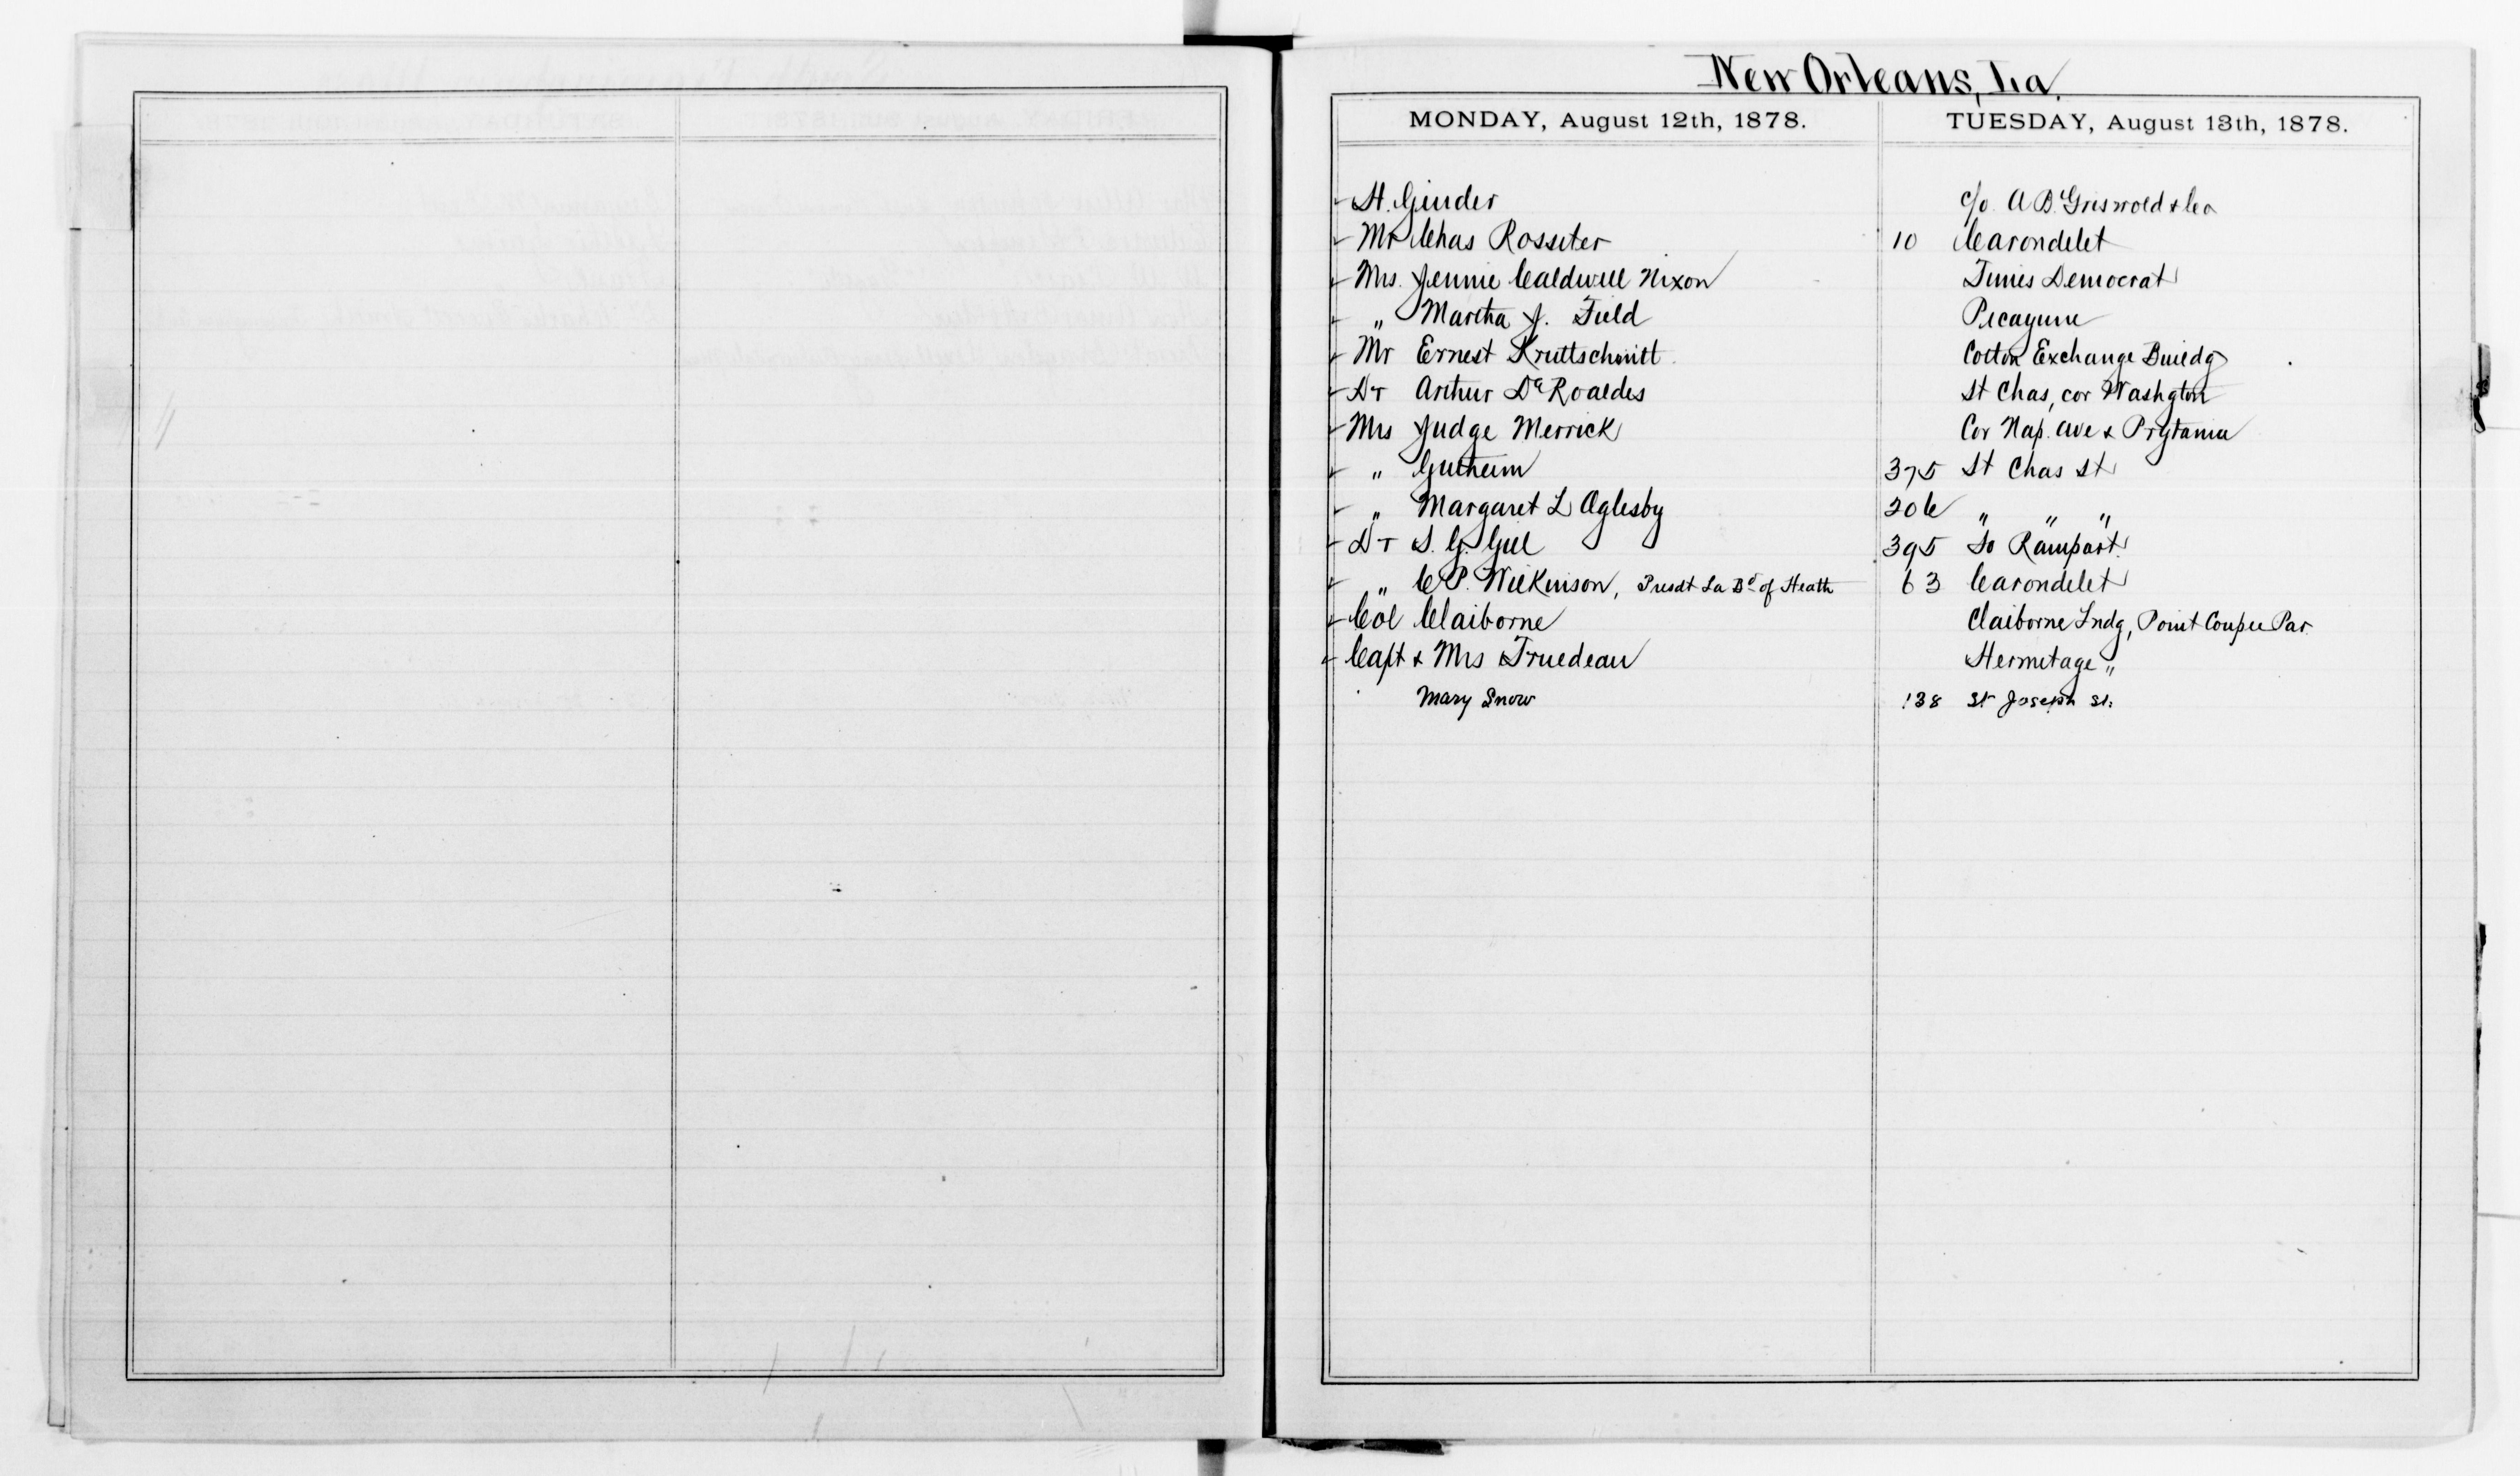 New Orleans, La.
MONDAY, August 12th, 1878. TUESDAY, August 13th, 1878.
H. Ginder c/o. A B. Griswold & Co
Mr Chas Rossiter 10 Carondelet
Mrs. Jennie Caldwell Nixon Times Democrat
" Martha J. Field Picayune
Mr Ernest Kruttschnitt Cotton Exchange Buildg
Dr Arthur De Roaldes St Chas, cor Washgton
Mrs Judge Merrick Cor Nap. Ave & Prytania
" Gutheim 375 St Chas St
" Margaret L Oglesby 206 " " "
Dr S. G. Gill 395 So Rampart
" C P. Wilkinson, Presdt La Bd of Heath 63 Carondelet
Col Claiborne Claiborne Lndg, Point Coupee Par.
Capt & Mrs Truedeau Hermitage "
Mary Snow 138 St Joseph St.